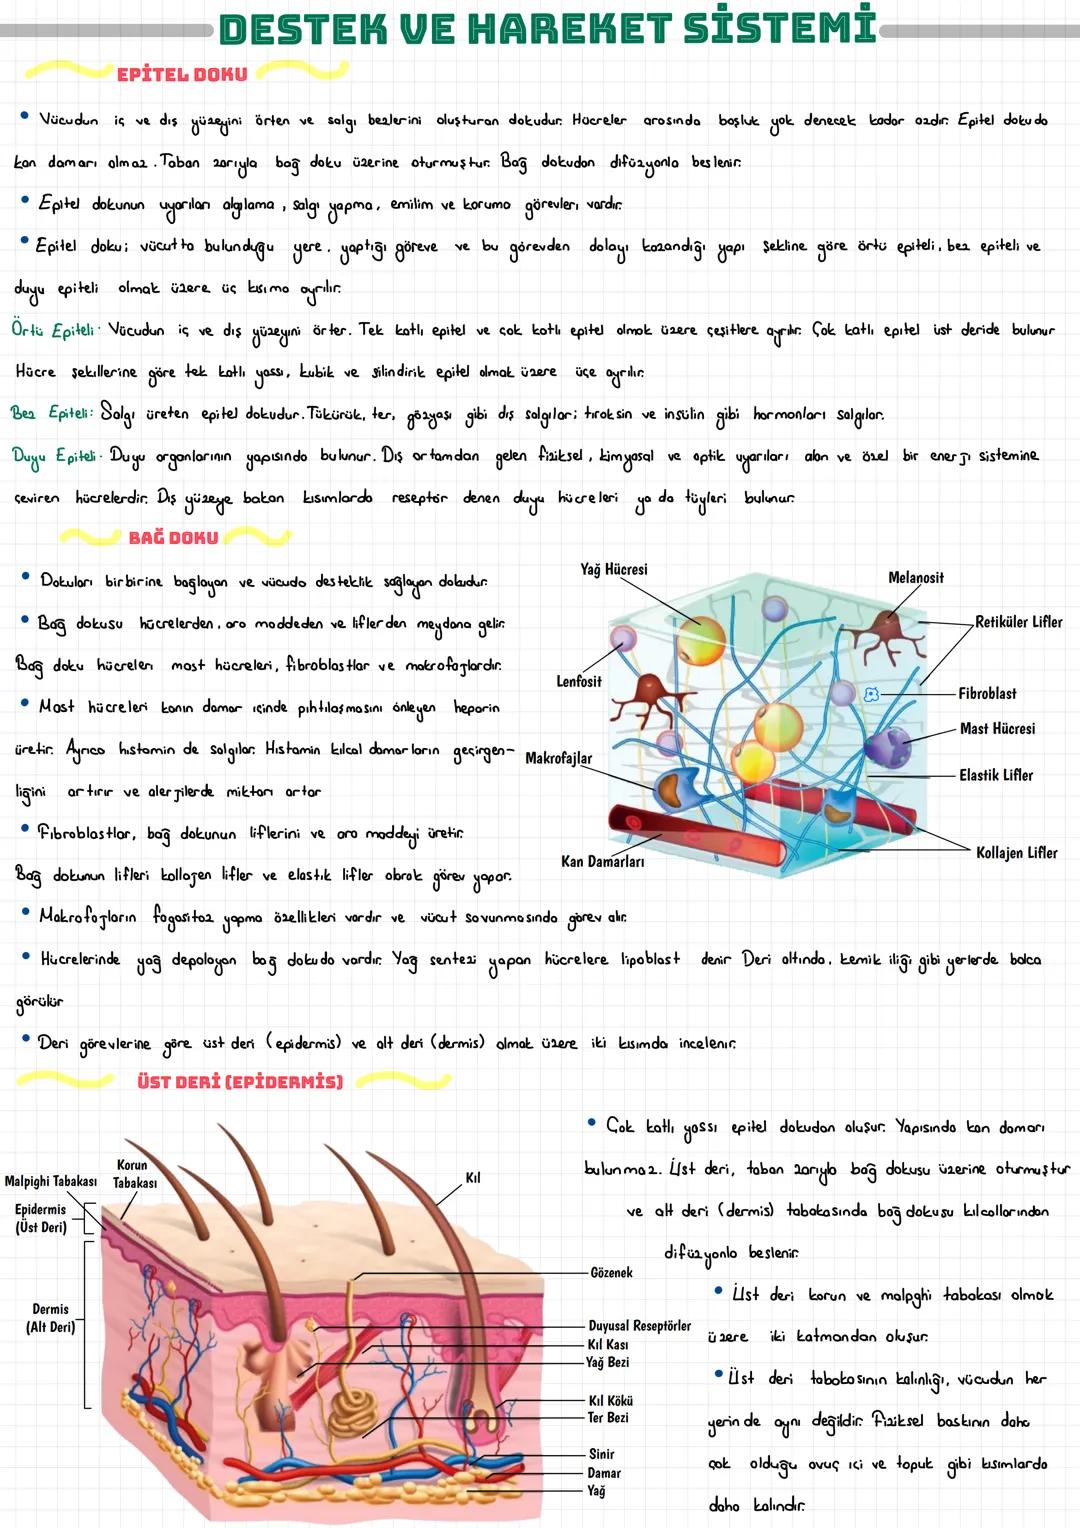 DESTEK VE HAREKET SİSTEMİ
EPİTEL DOKU
• Vücudun iç ve dış yüzeyini örten ve salgı bezlerini oluşturan dokudur. Hücreler arasında boşluk yok denecek kadar azdır. Epitel dokuda
kan damarı olmaz. Taban zarıyla bağ doku üzerine oturmuştur. Bağ dokudan difüzyonla beslenir.
• Epitel dokunun uyarıları algılama, salgı yapma, emilim ve koruma görevleri vardır.
• Epitel doku; vücutta bulunduğu yere, yaptığı göreve ve bu görevden dolayı kazandığı yapı şekline göre örtü epiteli, bez epiteli ve
duyu epiteli olmak üzere üç kısıma ayrılır.
Örtü Epiteli: Vücudun iç ve dış yüzeyini örter. Tek katlı epitel ve çok katlı epitel olmak üzere çeşitlere ayrılır. Çok katlı epitel üst deride bulunur
Hücre şekillerine göre tek katlı yassı, kubik ve silindirik epitel olmak üzere üçe ayrılır.
Bez Epiteli: Salgı üreten epitel dokudur. Tükürük, ter, gözyaşı gibi dış salgılar; tiroksin ve insülin gibi hormonları salgılar.
Duyu Epiteli: Duyu organlarının yapısında bulunur. Dış ortamdan gelen fiziksel, kimyasal ve optik uyarıları alan ve özel bir enerji sistemine
çeviren hücrelerdir. Dış yüzeye bakan kısımlarda reseptör denen duyu hücreleri ya da tüyleri bulunur.
BAĞ DOKU
• Dokuları birbirine bağlayan ve vücuda desteklik sağlayan dokudur.
• Bağ dokusu hücrelerden, ara maddeden ve liflerden meydana gelir.
Bağ doku hücreleri mast hücreleri, fibroblastlar ve makrofajlardır.
• Mast hücreleri kanın damar içinde pıhtılaşmasını önleyen heparin
üretir. Ayrıca histamin de salgılar. Histamin kılcal damarların geçirgen-
liğini artırır ve alerjilerde miktarı artar
• Fibroblastlar, bağ dokunun liflerini ve ara maddeyi üretir.
Bağ dokunun lifleri kollajen lifler ve elastik lifler olarak görev yapar.
• Makrofajların fagositoz yapma özellikleri vardır ve vücut savunmasında görev alır.
• Hücrelerinde yağ depolayan bağ dokuda vardır. Yağ sentezi yapan hücrelere lipoblast denir Deri altında, kemik iliği gibi yerlerde bolca
görülür
• Deri görevlerine göre üst deri (epidermis) ve alt deri (dermis) olmak üzere iki kısımda incelenir.
Yağ Hücresi
Melanosit
Retiküler Lifler
Lenfosit
Fibroblast
Mast Hücresi
Makrofajlar
Elastik Lifler
Kollajen Lifler
Kan Damarları
ÜST DERİ (EPİDERMİS)
Korun
Tabakası
Malpighi Tabakası
Epidermis
(Üst Deri)
Dermis
(Alt Deri)
Kıl
Gözenek
Duyusal Reseptörler
Kıl Kası
Yağ Bezi
Kıl Kökü
Ter Bezi
Sinir
Damar
Yağ
• Çok katlı yassı epitel dokudan oluşur. Yapısında kan damarı
bulunmaz. Üst deri, taban zarıyla bağ dokusu üzerine oturmuştur
ve alt deri (dermis) tabakasında bağ dokusu kılcallarından
difüzyonla beslenir.
• Üst deri korun ve malpghi tabakası olmak
üzere iki katmandan oluşur.
• Üst deri tabakasının kalınlığı, vücudun her
yerinde aynı değildir. Fiziksel baskının daha
çok olduğu avuç içi ve topuk gibi kısımlarda
daha kalındır.